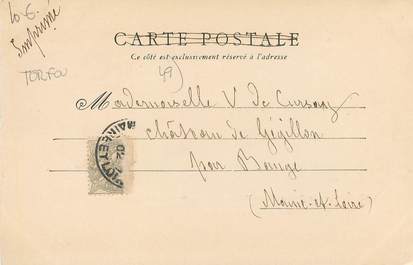 10-E.
Imprimé
TORFOU
CARTE POSTALE
Ce côté est exclusivement réservé à l'adresse
49)
Mademoiselle V. de Cursay
château de
par Baugé
(Maine-et-Loire)